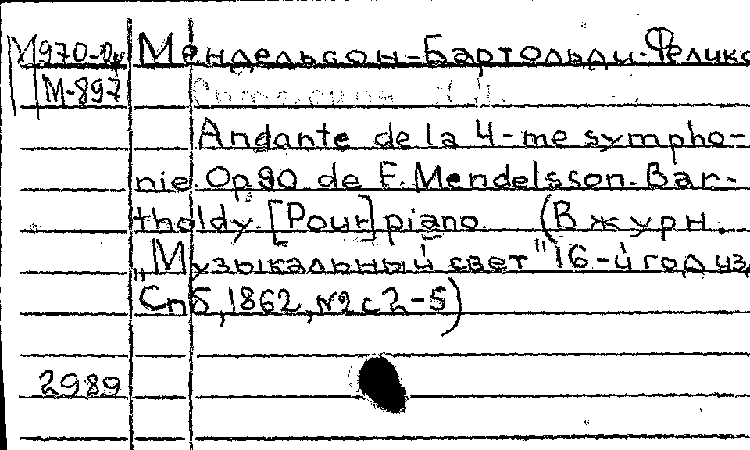 М970-Ок Мендельсон-Бартольди-Феликс
М-897
Andante de la 4-me sympho-
nie. Op. 90 de F. Mendelsson-Bar-
tholdy. [Pour] piano (В журн.
„Музыкальный свет" 16-й год из
Спб, 1862, №2 с 2-5)
2989